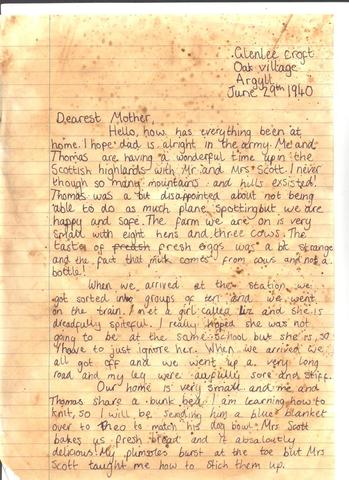 Glenlee Croft
Oak village
Argyll
June 29th 1940
Dearest Mother,
Hello, how has everything been at
home. I hope dad is alright in the army. Me and
Thomas are having a wonderful time up in the
Scottish highlands with Mr. and Mrs Scott. I never
though so many mountains and hills exsisted!
Thomas was a bit disappointed about not being
able to do as much plane spotting but we are
happy and safe. The farm we are on is very
small with eight hens and three cows. The
taste of fresh eggs was a bit strange
and the fact that milk comes from cows and not a
bottle!
When we arrived at the station we
got sorted into groups of ten and we went
on the train. I met a girl called Liz and she is
dreadfully spiteful. I really hoped she was not
going to be at the same school but she is, so
I have to just ignore her. When we arrived we
all got off and we went up a very long
road and my leg were awfully sore and stiff.
Our home is very small and me and
Thomas share a bunk bed. I am learning how to
knit, so I will be sending him a blue blanket
over to Theo to match his dog bowl. Mrs Scott
bakes us fresh bread and it absaloutly
delicious! My plimsoles burst at the toe but Mrs
Scott taught me how to stich them up.